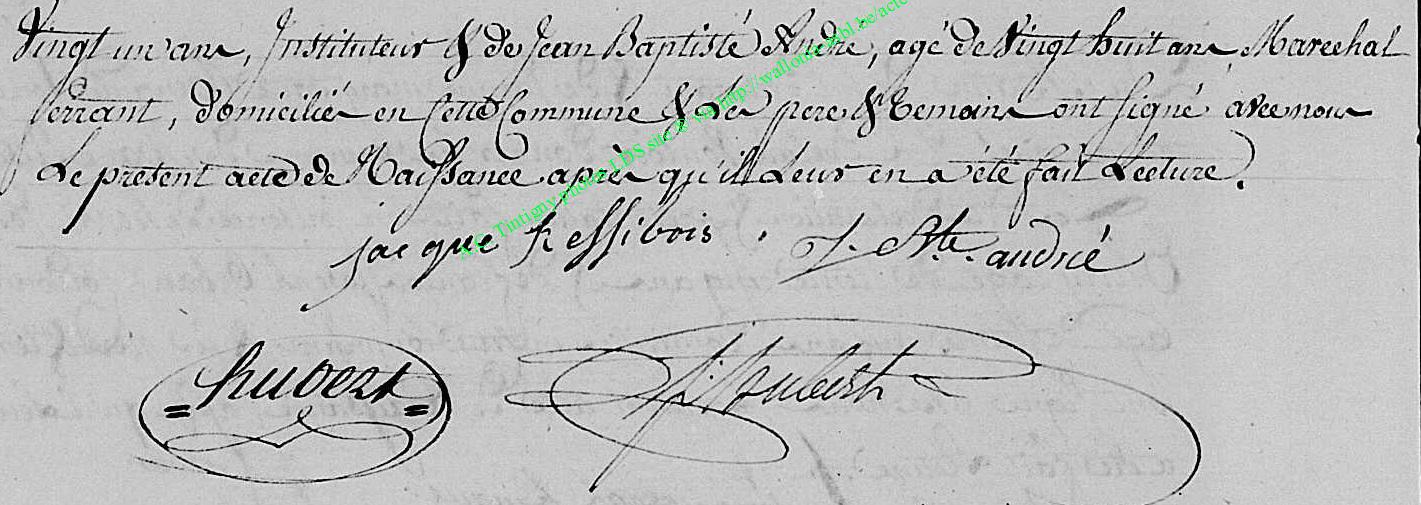 Vingt un ans, Instituteur & de Jean Baptiste André, agé de Vingt huit ans Marechal
ferrant, domiciliés en Cette Commune & Les pere & temoins ont signé avec nous
Le present acte de Naissance après qu'il Leur en a été fait Lecture.
jacque ressibois . J. Bte. andré
= hubert =
A.C. Tintigny photos LDS site & via http://wallonia.mbl.be/acte